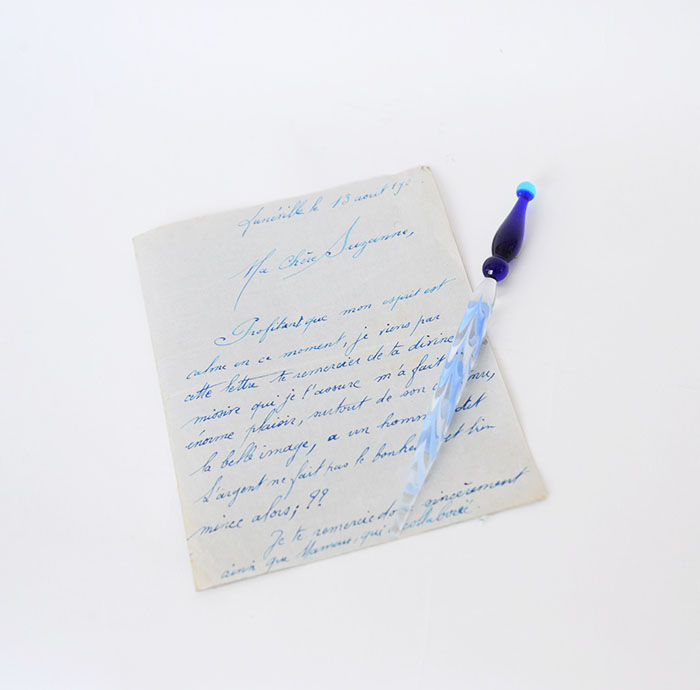 Lunéville le 13 août 19
Ma Chère Suzanne,
Profitant que mon esprit est
calme en ce moment, je viens par
cette lettre te remercier de ta divine
missive qui je t'assure m'a fait
énorme plaisir, surtout de son
la belle image, a un homme
L'argent ne fait pas le bonheur et bien
mince alors; ??
Je te remercie donc sincèrement
ainsi que Maman, qui a collaboré.